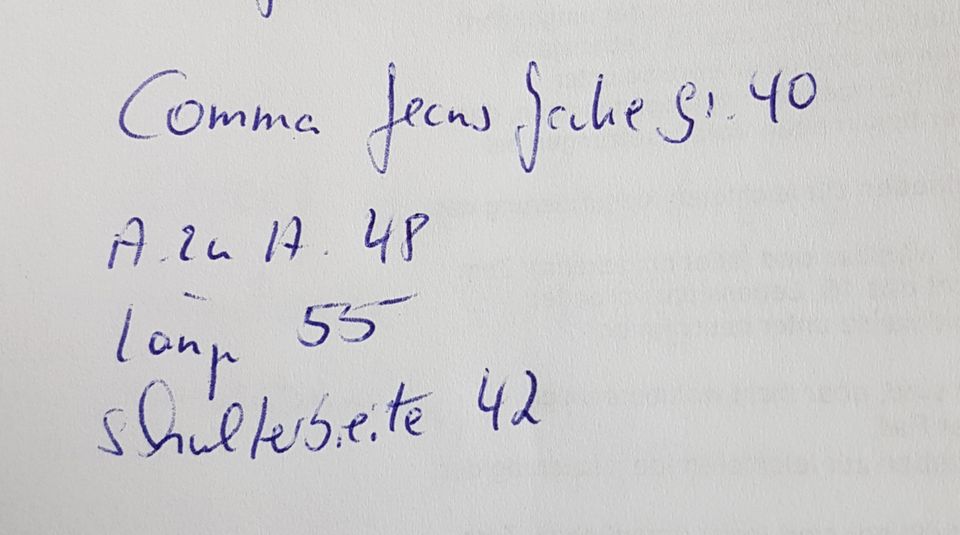 Comma Jeans Jacke Gr. 40
A. zu A. 48
Länge 55
Schulterbreite 42